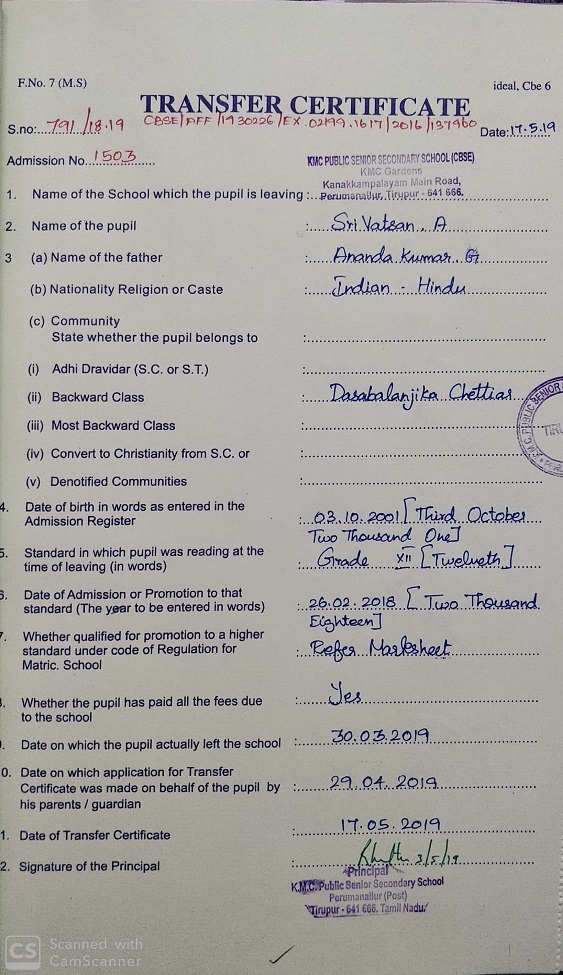 F.No. 7 (M.S) ideal, Cbe 6
TRANSFER CERTIFICATE
S.no: 791/18-19 CBSE/AFF/1930226/EX.02199.1617/2016/137960 Date: 17.5.19
Admission No. 1503
KMC PUBLIC SENIOR SECONDARY SCHOOL (CBSE)
KMC Gardens
Kanakkampalayam Main Road,
1. Name of the School which the pupil is leaving : Perumanallur, Tirupur - 641 666.
2. Name of the pupil : Sri Vatsan. A
3 (a) Name of the father : Ananda Kumar. G
(b) Nationality Religion or Caste : Indian - Hindu
(c) Community
State whether the pupil belongs to :
(i) Adhi Dravidar (S.C. or S.T.) :
(ii) Backward Class : Dasabalanjika Chettiar
K.M.C. PUBLIC SENIOR
(iii) Most Backward Class :
(iv) Convert to Christianity from S.C. or :
(v) Denotified Communities :
4. Date of birth in words as entered in the
Admission Register : 03.10.2001 [Third October
Two Thousand One]
5. Standard in which pupil was reading at the
time of leaving (in words) : Grade XII [Twelveth]
6. Date of Admission or Promotion to that
standard (The year to be entered in words) : 26.02.2018 [Two Thousand
Eighteen]
7. Whether qualified for promotion to a higher
standard under code of Regulation for : Refer Marksheet
Matric. School
8. Whether the pupil has paid all the fees due : Yes
to the school
. Date on which the pupil actually left the school : 30.03.2019
0. Date on which application for Transfer
Certificate was made on behalf of the pupil by : 29.04.2019
his parents / guardian
1. Date of Transfer Certificate : 17.05.2019
2. Signature of the Principal : 3/5/19
Principal
K.M.C. Public Senior Secondary School
Perumanallur (Post)
Tirupur - 641 666. Tamil Nadu.
CS Scanned with
CamScanner